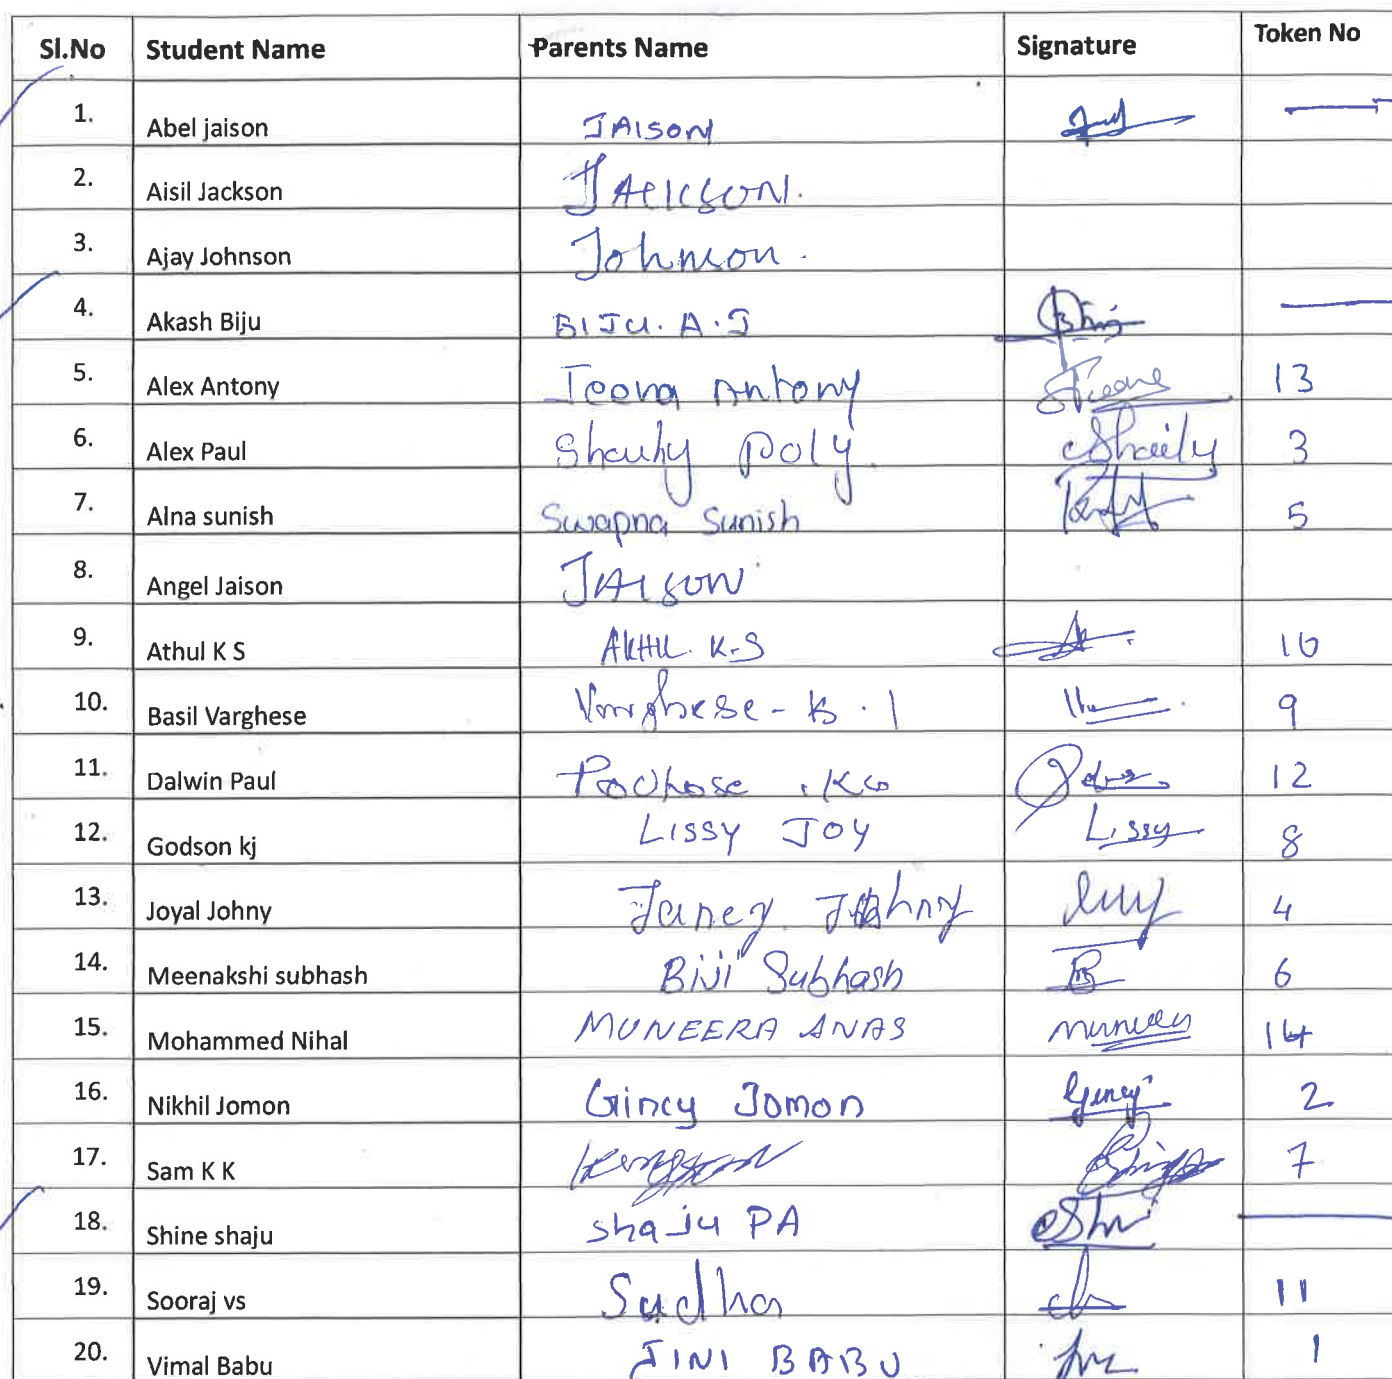 Sl.No Student Name Parents Name Signature Token No
1. Abel jaison JAISON
2. Aisil Jackson JACKSON.
3. Ajay Johnson Johnson.
4. Akash Biju BIJU. A.J
5. Alex Antony Teena Antony 13
6. Alex Paul Shauly Poly Shaily 3
7. Alna sunish Swapna Sunish 5
8. Angel Jaison JAISON
9. Athul K S AKHIL K.S 10
10. Basil Varghese Varghese - K. I 9
11. Dalwin Paul 12
12. Godson kj LISSY JOY Lissy 8
13. Joyal Johny Jancy Johny 4
14. Meenakshi subhash Biji Subhash B 6
15. Mohammed Nihal MUNEERA ANAS 14
16. Nikhil Jomon Gincy Jomon Gincy 2
17. Sam K K 7
18. Shine shaju shaju PA
19. Sooraj vs Sudha 11
20. Vimal Babu JINI BABU 1